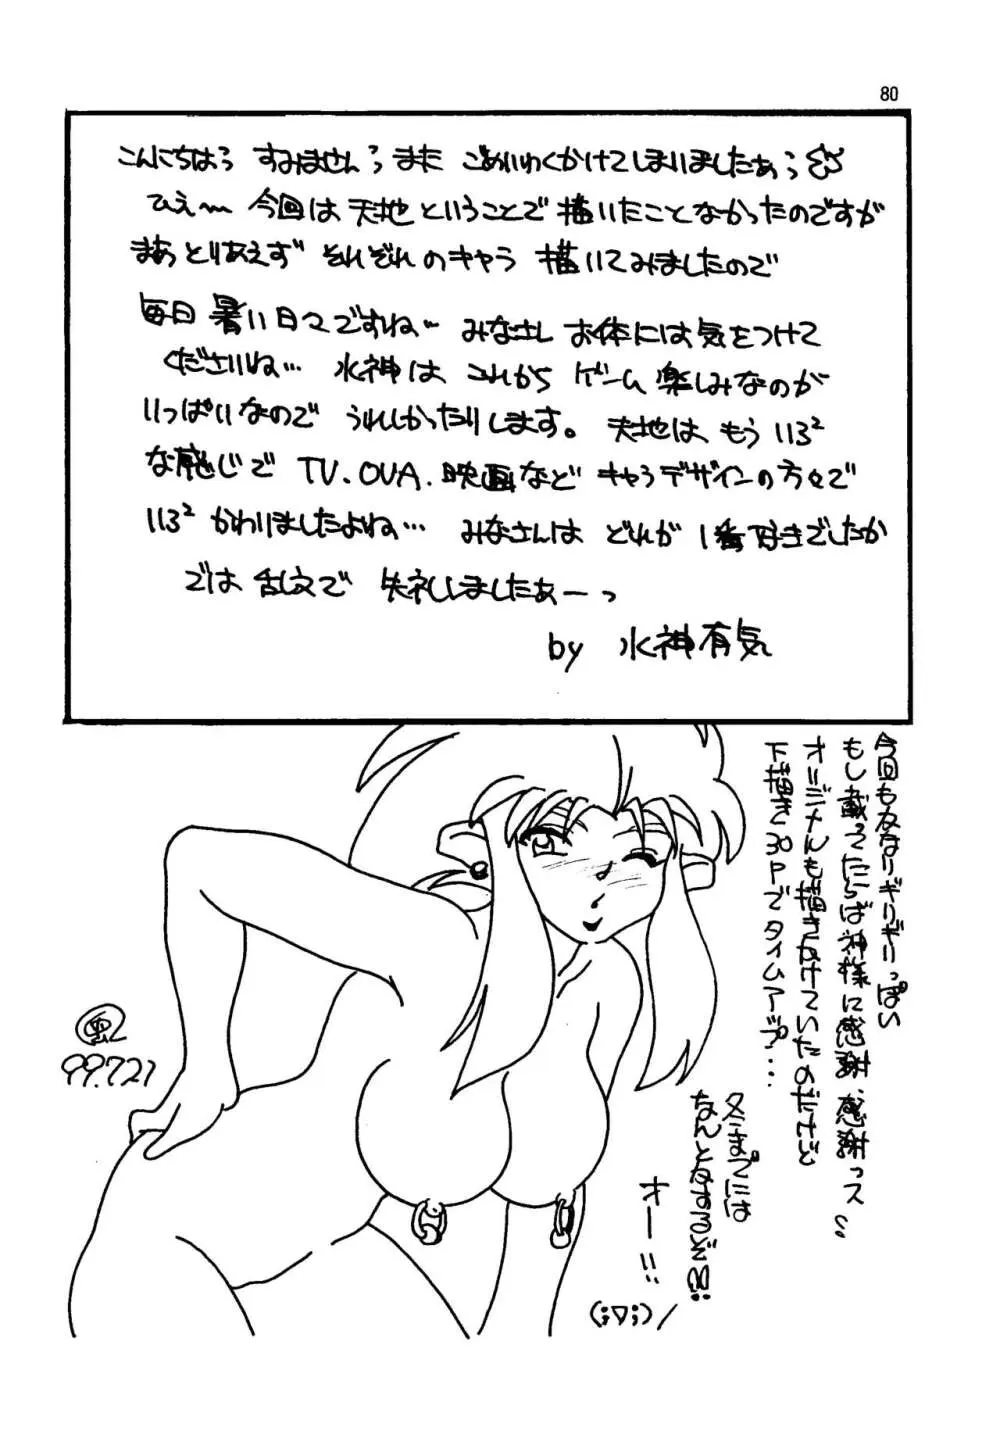 80
こんにちはっ すみませんっ また ごめいわくかけてしまいましたぁっ
ひえ〜 今回は 天地 ということで 描いたことなかったのですが
まあ とりあえず それぞれの キャラ 描いてみましたので
毎日 暑い 日々ですね… みなさん お体には 気をつけて
くださいね… 水神は これから ゲーム 楽しみなのが
いっぱいなので うれしかったりします。 天地は、もう いろ²
な感じで TV.OVA.映画など キャラデザインの 方々で
いろ² かわりましたよね… みなさんは どれが 1番 好きでしたか
では 乱文で 失礼しましたぁーっ
by 水神有気
今回もかなりギリギリっぽい
もし載ってたらば神様に感謝、感謝っス
オリジナルも描きかけていたのだけど
下描き30Pでタイムアップ...
冬までには
なんとかするぞ!!
オー!!
(;∇;)/
99.7.21